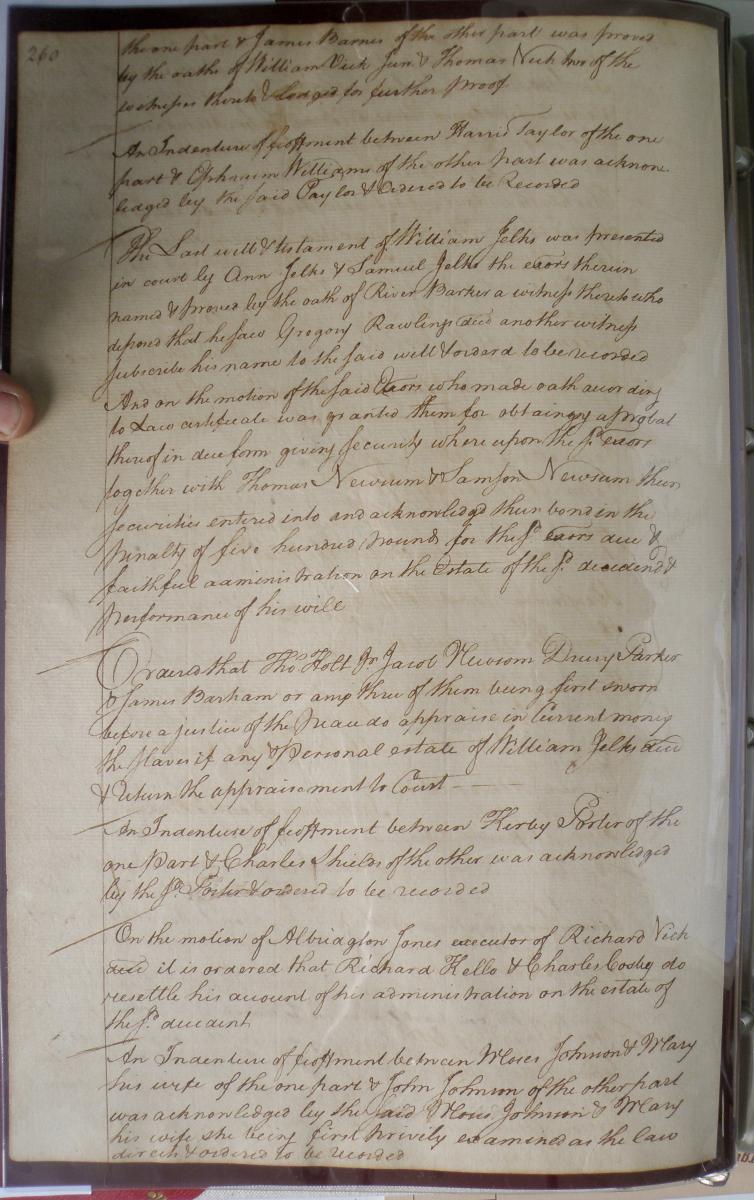 260
the one part & James Barnes of the other part was proved
by the oaths of William Vick Junr & Thomas Vick two of the
witness thereto & lodged for further proof
An Indenture of feoffment between Harris Taylor of the one
part & Ephraim Williams of the other part was acknow
ledged by the said Taylor & ordered to be Recorded
The Last will & testament of William Jelks was presented
in court by Ann Jelks & Samuel Jelks the exors therein
named & proved by the oath of River Barker a witness thereto who
deposed that he saw Gregory Rawlings decd another witness
subscribe his name to the said will & orderd to be recorded
And on the motion of the said Exors who made oath according
to Law certificate was granted them for obtaingy a probat
thereof in due form giving security where upon the sd. exors
together with Thomas Newsum & Samson Newsum their
securities entered into and acknowledged their bond in the
penalty of five hundred pounds for the sd. exors due &
faithful administration on the Estate of the sd. decedend &
performance of his will
Ordered that Thos. Holt Jr. Jacob Newsom Drury Parker
& James Barham or any three of them being first sworn
before a justice of the peace do appraise in Current money
the slaves if any & Personal estate of William Jelks decd
& return the appraisement to Court
An Indenture of feoffment between Kerby Porter of the
one part & Charles Shields of the other was acknowledged
by the sd. Porter & ordered to be recorded
On the motion of Albridgton Jones executor of Richard Vick
decd it is ordered that Richard Kello & Charles Cosby do
resettle his acount of his administration on the estate of
the sd. decedent
An Indenture of feoffment between Moses Johnson & Mary
his wife of the one part & John Johnson of the other part
was acknowledged by the said Moses Johnson & Mary
his wife she being first privily examined as the law
directs & ordered to be recorded